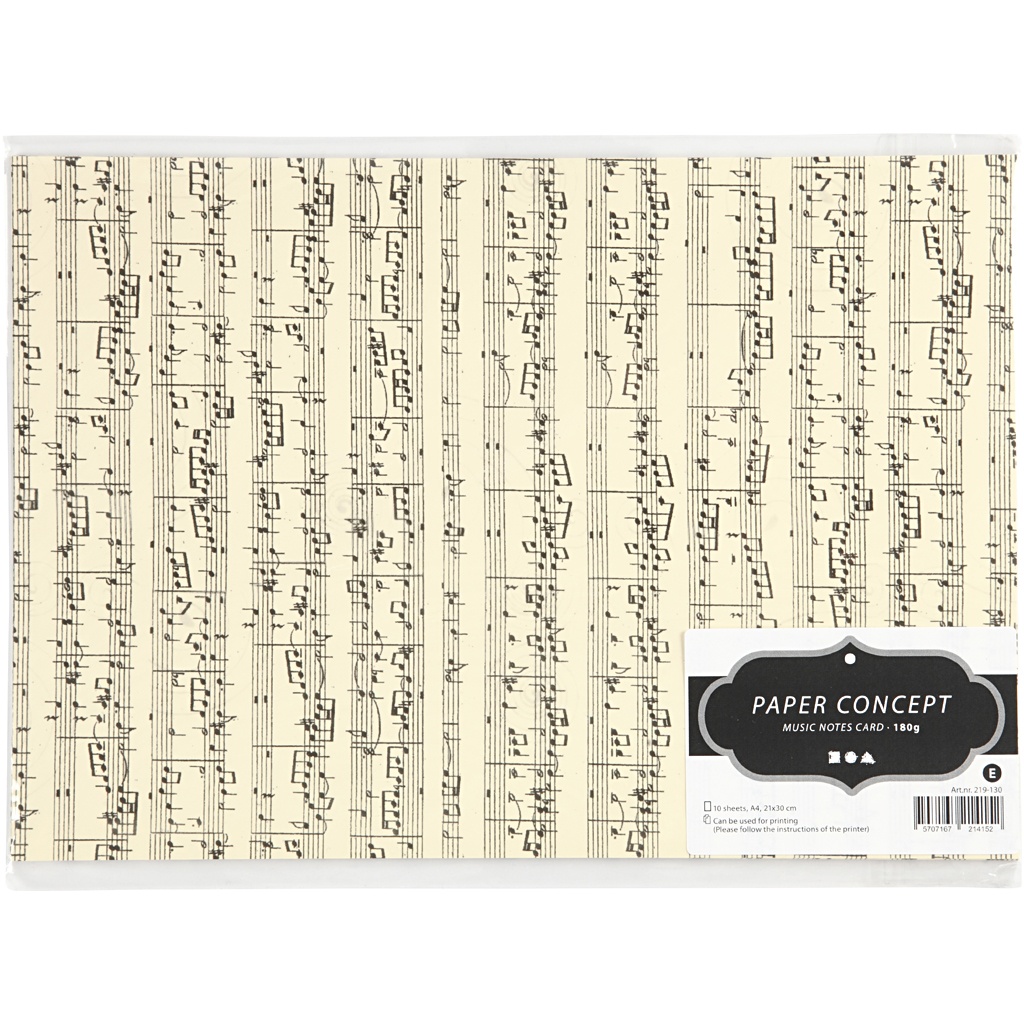 PAPER CONCEPT
MUSIC NOTES CARD · 180g
E
Art.nr. 219-130
10 sheets, A4, 21x30 cm
Can be used for printing
(Please follow the instructions of the printer)
5707167 214152